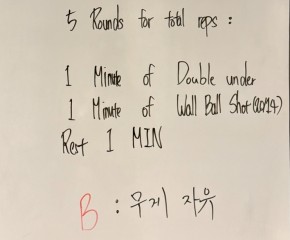 5 Rounds for total reps :
1 Minute of Double under
1 Minute of Wall Ball Shot (20/14)
Rest 1 MIN
B : 무게 자유